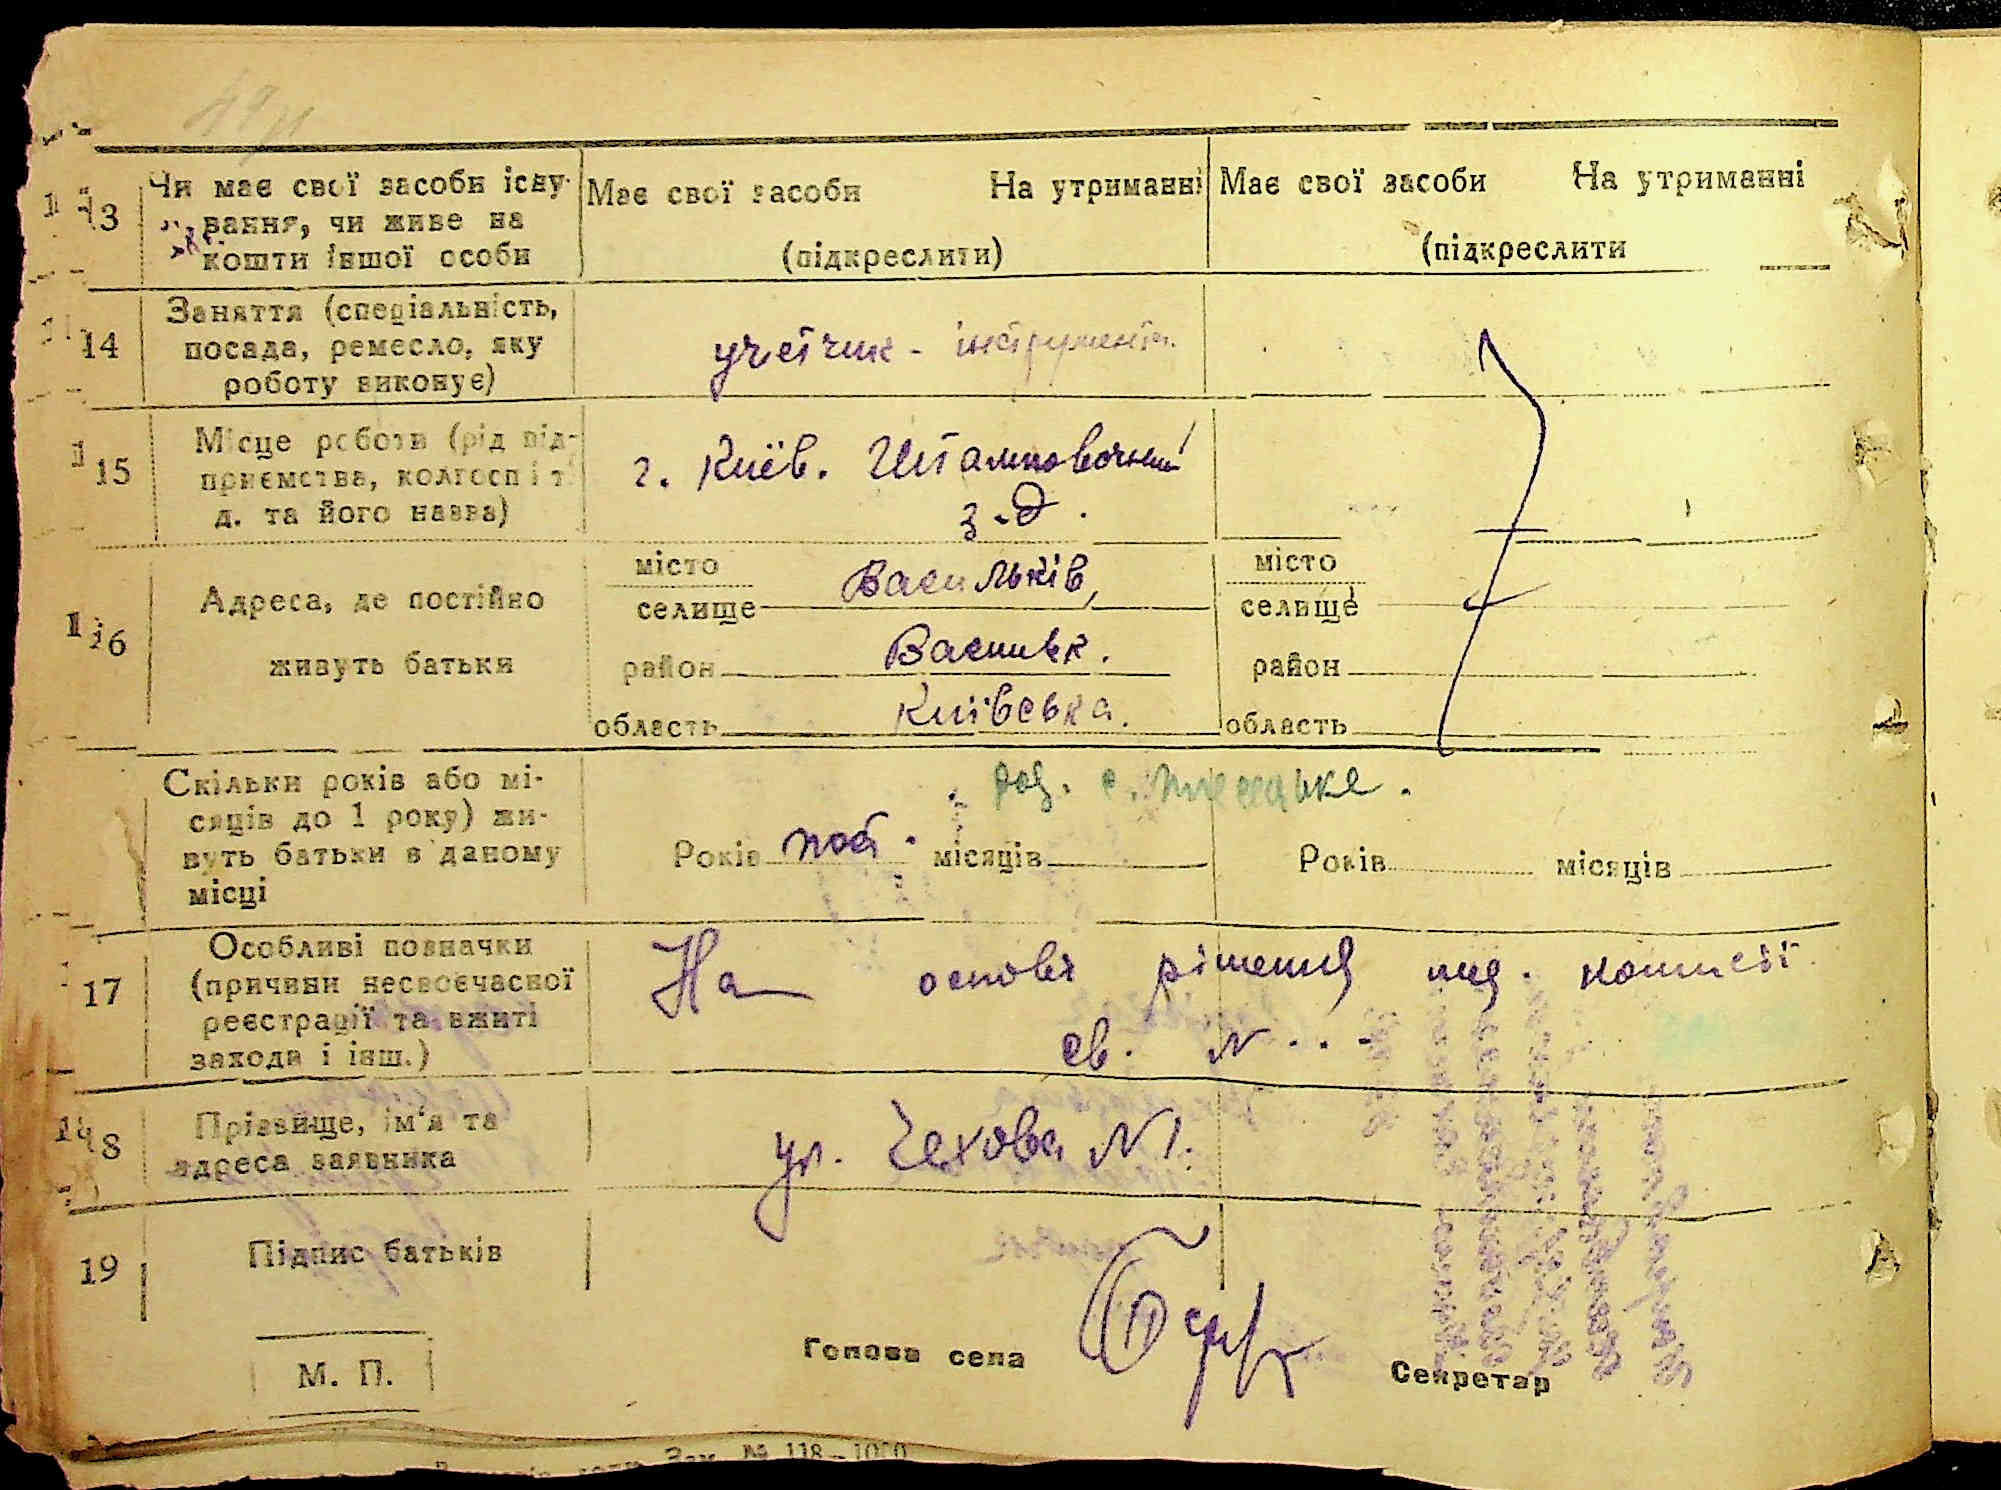 13 Чи має свої засоби існу- Має свої засоби На утриманні Має свої засоби На утриманні
вання, чи живе на
кошти іншої особи (підкреслити) (підкреслити
Заняття (спеціальність,
14 посада, ремесло, яку учетчик - інструмент.
роботу виконує)
Місце роботи (рід під-
15 приємства, колгосп і т. г. Київ. Штамповочний
д. та його назва) з-д.
місто Васильків, місто
16 Адреса, де постійно селище селище
живуть батьки район Васильк. район
область Київська. область
Скільки років або мі- с.
сяців до 1 року) жи-
вуть батьки в даному Років пост. місяців Років місяців
місці
Особливі позначки
17 (причини несвоєчасної На основі рішення комісії
реєстрації та вжиті
заходи і інш.) св. N . . -
18 Прізвище, ім'я та ул. Чехова N 1.
адреса заявника
19 Підпис батьків
М. П. Голова села Секретар
Зам. № 118—1000